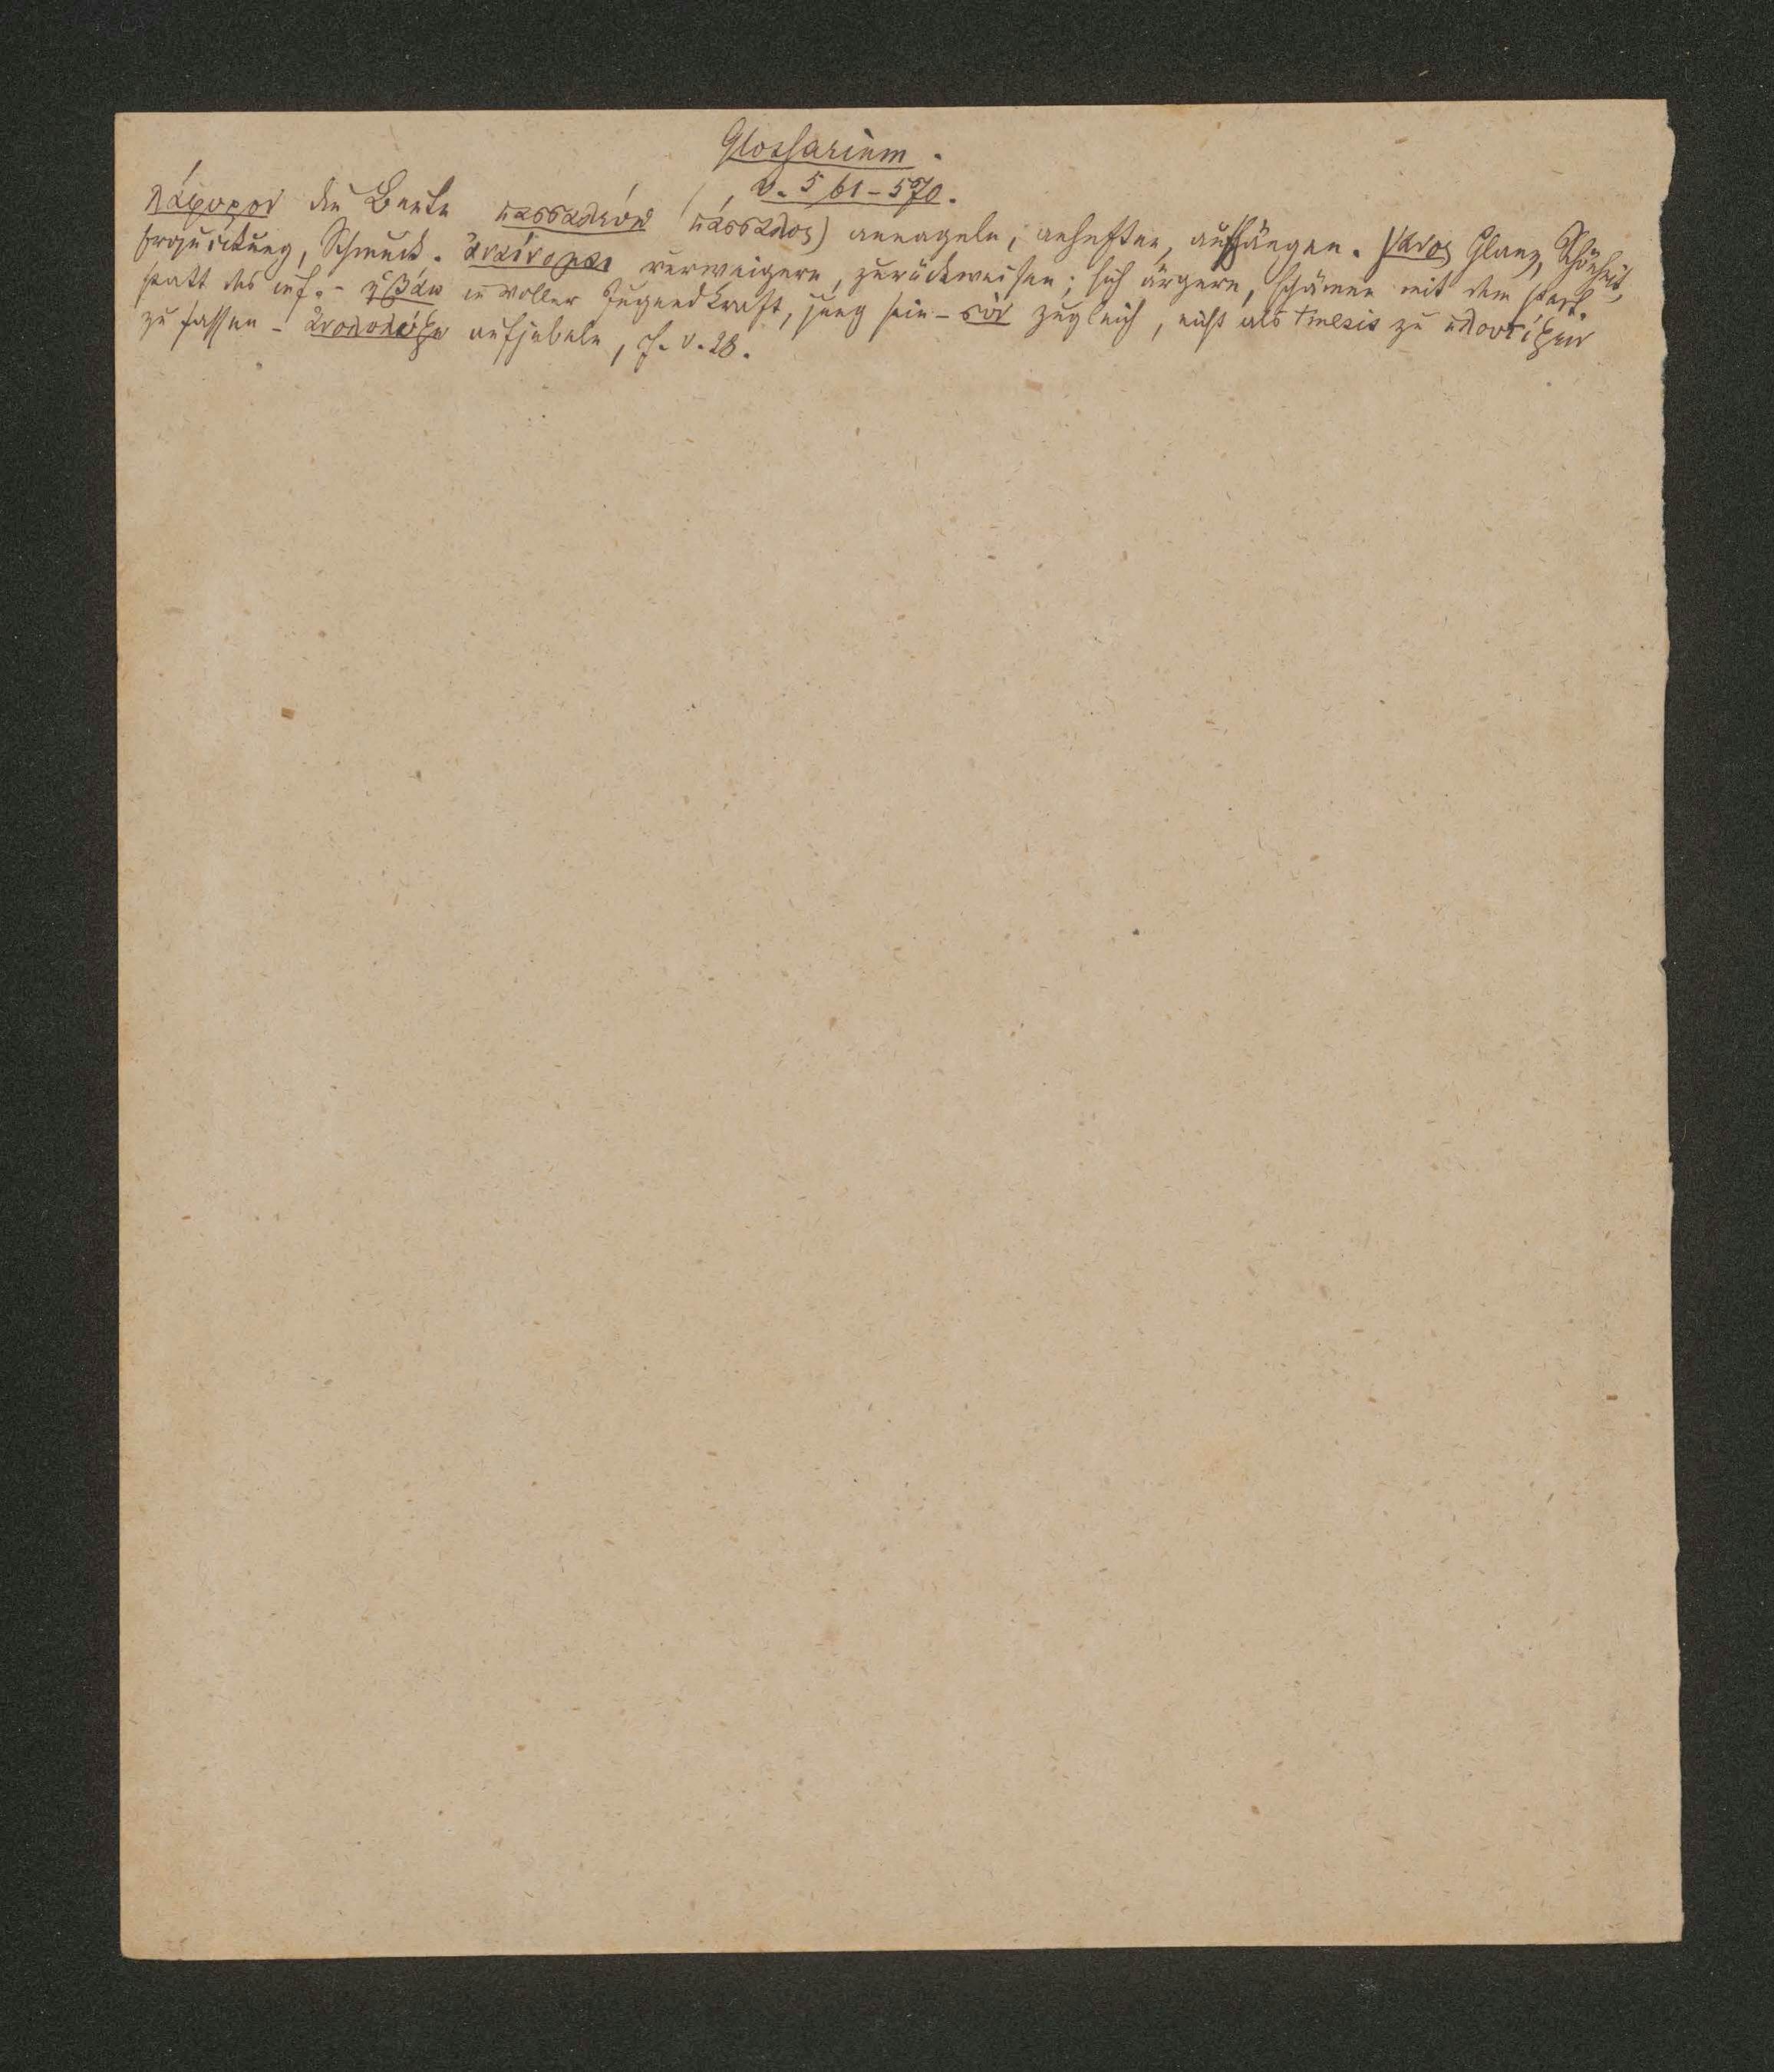 Glossarium.
v. 561-570.
λάφυρον die Beute πασσαλεύω (πάσσαλος) annageln, anheften, aufhängen. γάνος Glanz, Schönheit,
Erquickung, Schmuck. ἀναίνομαι verweigern, zurückweisen; sich ärgern, schämen mit dem part.
statt des inf. - ἡβάω in voller Jugendkraft, jung sein - σὺν zugleich, nicht als tmesis zu πλουτίζειν
zu fassen - ἀνολολύζω aufjubeln, cf. v. 28.